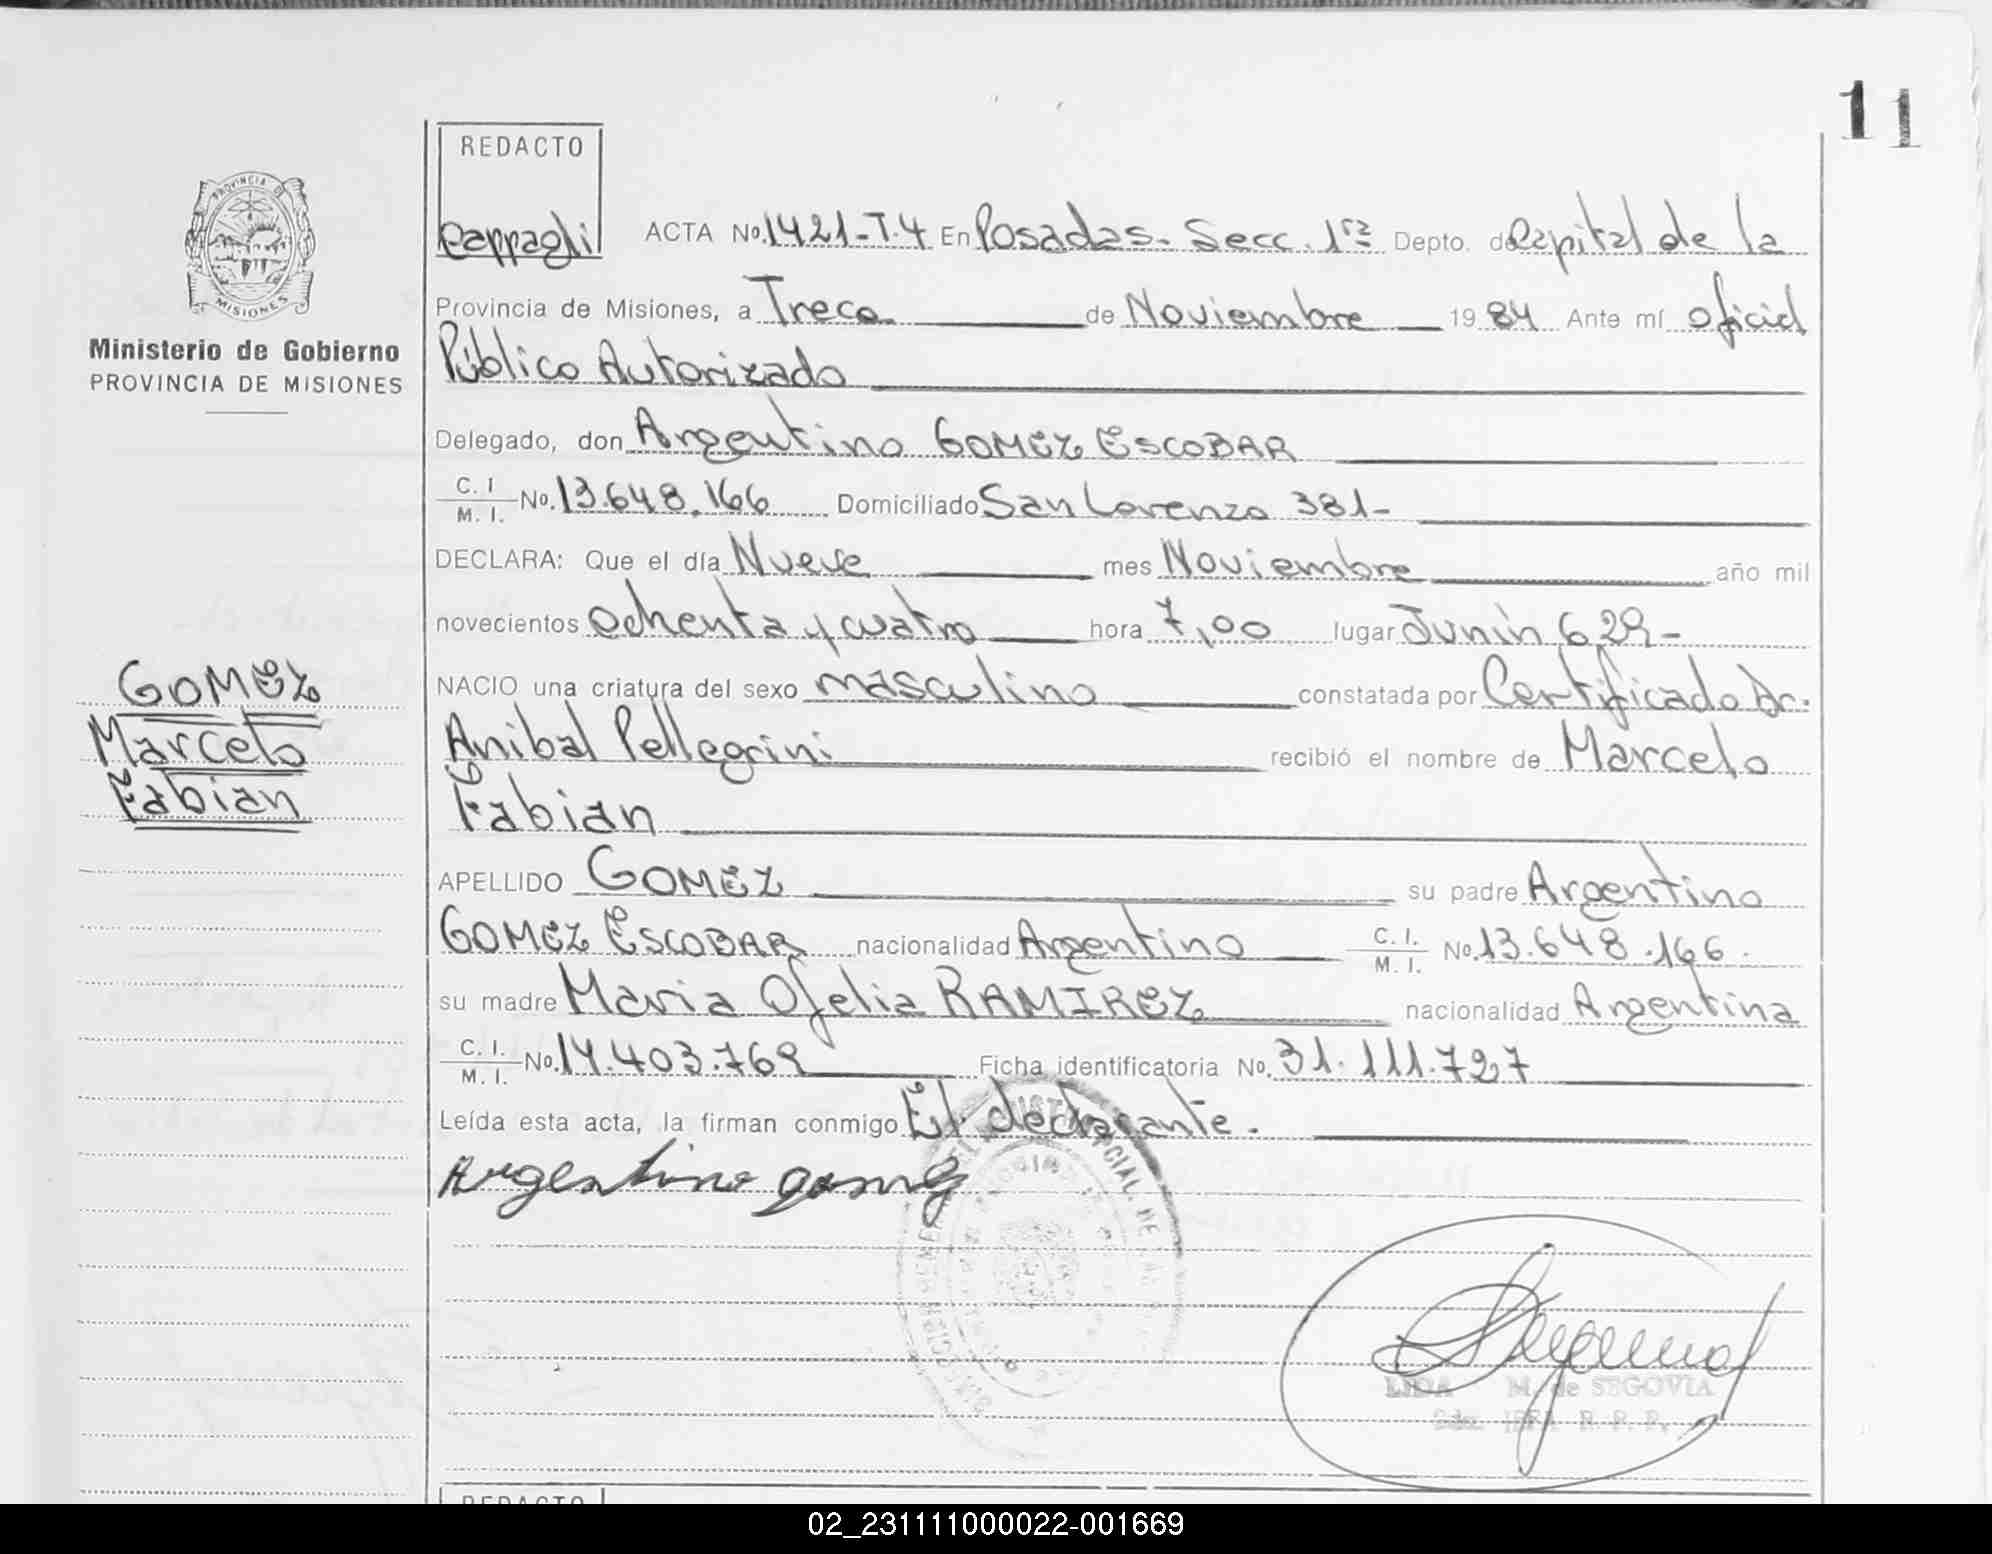 11
REDACTO
Cappagli
ACTA No. 1421-T.4 En Posadas - Secc. 1ra Depto. de Capital de la
Provincia de Misiones, a Trece de Noviembre 1984 Ante mí oficial
Público Autorizado
PROVINCIA DE
MISIONES
Ministerio de Gobierno
PROVINCIA DE MISIONES
Delegado, don Argentino GOMEZ ESCOBAR
C. I. M. I. No. 13.648.166 Domiciliado San Lorenzo 381-
DECLARA: Que el día Nueve mes Noviembre año mil
novecientos ochenta y cuatro hora 7,00 lugar Junin 629-
GOMEZ
Marcelo
Fabian
NACIO una criatura del sexo masculino constatada por Certificado Dr.
Anibal Pellegrini recibió el nombre de Marcelo
Fabian
APELLIDO GOMEZ su padre Argentino
GOMEZ ESCOBAR nacionalidad Argentino C. I. M. I. No. 13.648.166.
su madre Maria Ofelia RAMIREZ nacionalidad Argentina
C. I. M. I. No. 14.403.769 Ficha identificatoria No. 31.111.727
Leída esta acta, la firman conmigo El declarante.
Argentino gomez
M. de SEGOVIA
REDACTO
02_231111000022-001669